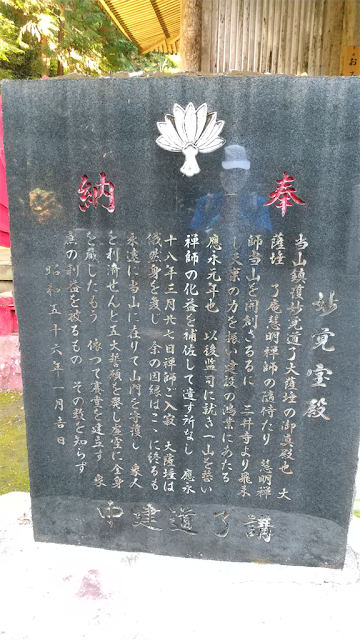 奉納
妙覚宝殿
当山鎮護妙光道了大薩埵の御真殿也 大
薩埵 了庵慧明禅師の随侍たり 慧明禅
師当山を開創さるるに 三井寺より飛来
し天業の力を振い建設の鴻業にあたる
應永元年也 以後監司に就き一山を整い
禅師の化益を補佐して遺す所なし 應永
十八年三月廿七日禅師ご入寂 大薩埵は
俄然身を変じ 余の因縁はここに終るも
永遠に当山に在りて山門を守護し 衆人
を利済せんと五大誓願を発し 室に全身
を蔵したもう 依つて宝を建立す 衆
の利益を被るもの その数を知らず
昭和五十六年一月吉日
中建道了講